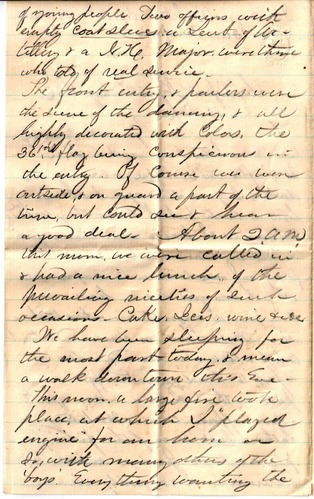 of young people. Two officers with
empty coat sleeve a Lieut. of Ar-
tillery, & a N.H. Major were there
who told of real service.
The front entry, & parlors were
the scene of the dancing, & all
highly decorated with Colors, the
36th flag being conspicuous in
the entry. Of course we were
outside, & on guard a part of the
time, but could see & hear
a good deal. About 2 A.M.
this morn. we were called in
& had a nice lunch, of the
prevailing niceties of such
occasions - Cake, Ices, wine &c &c
We have been sleeping for
the most part today, & mean
a walk down town this Eve -
This morn. a large fire took
place, at which I "played
engine for an hour or
so, with many others of the
boys. Everything wanting the